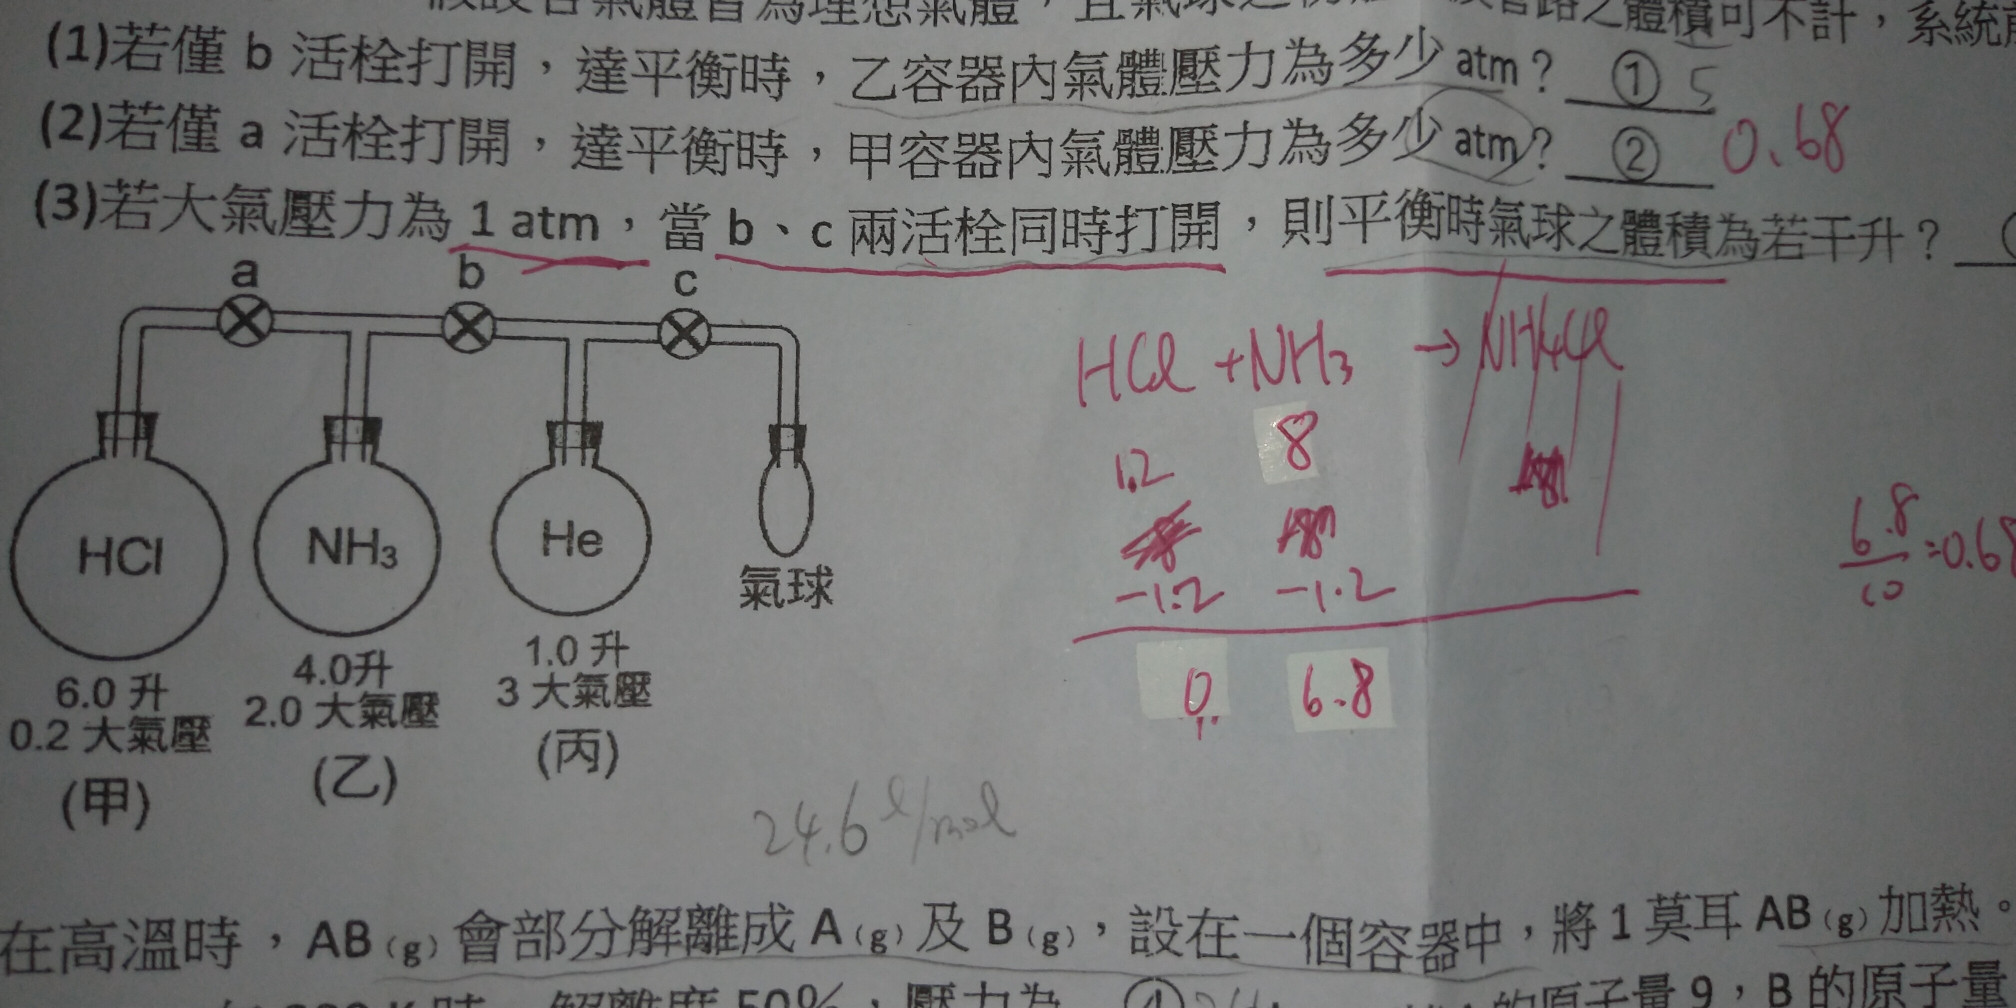 假設各氣體皆為理想氣體，且氣球之 路之體積可不計，系統
(1)若僅 b 活栓打開，達平衡時，乙容器內氣體壓力為多少 atm？ ① 5
(2)若僅 a 活栓打開，達平衡時，甲容器內氣體壓力為多少 atm？ ② 0.68
(3)若大氣壓力為 1 atm，當 b、c 兩活栓同時打開，則平衡時氣球之體積為若干升？
a b c
HCl + NH3 → NH4Cl
1.2 8
-1.2 -1.2
0 6.8
6.8/10 = 0.68
HCl NH₃ He
氣球
6.0 升 4.0升 1.0 升
0.2 大氣壓 2.0 大氣壓 3 大氣壓
(甲) (乙) (丙)
24.6 l/mol
在高溫時，AB(g) 會部分解離成 A(g) 及 B(g)，設在一個容器中，將 1 莫耳 AB(g) 加熱。
時 解離度 50%，壓力為 ④ 的原子量 9，B 的原子量